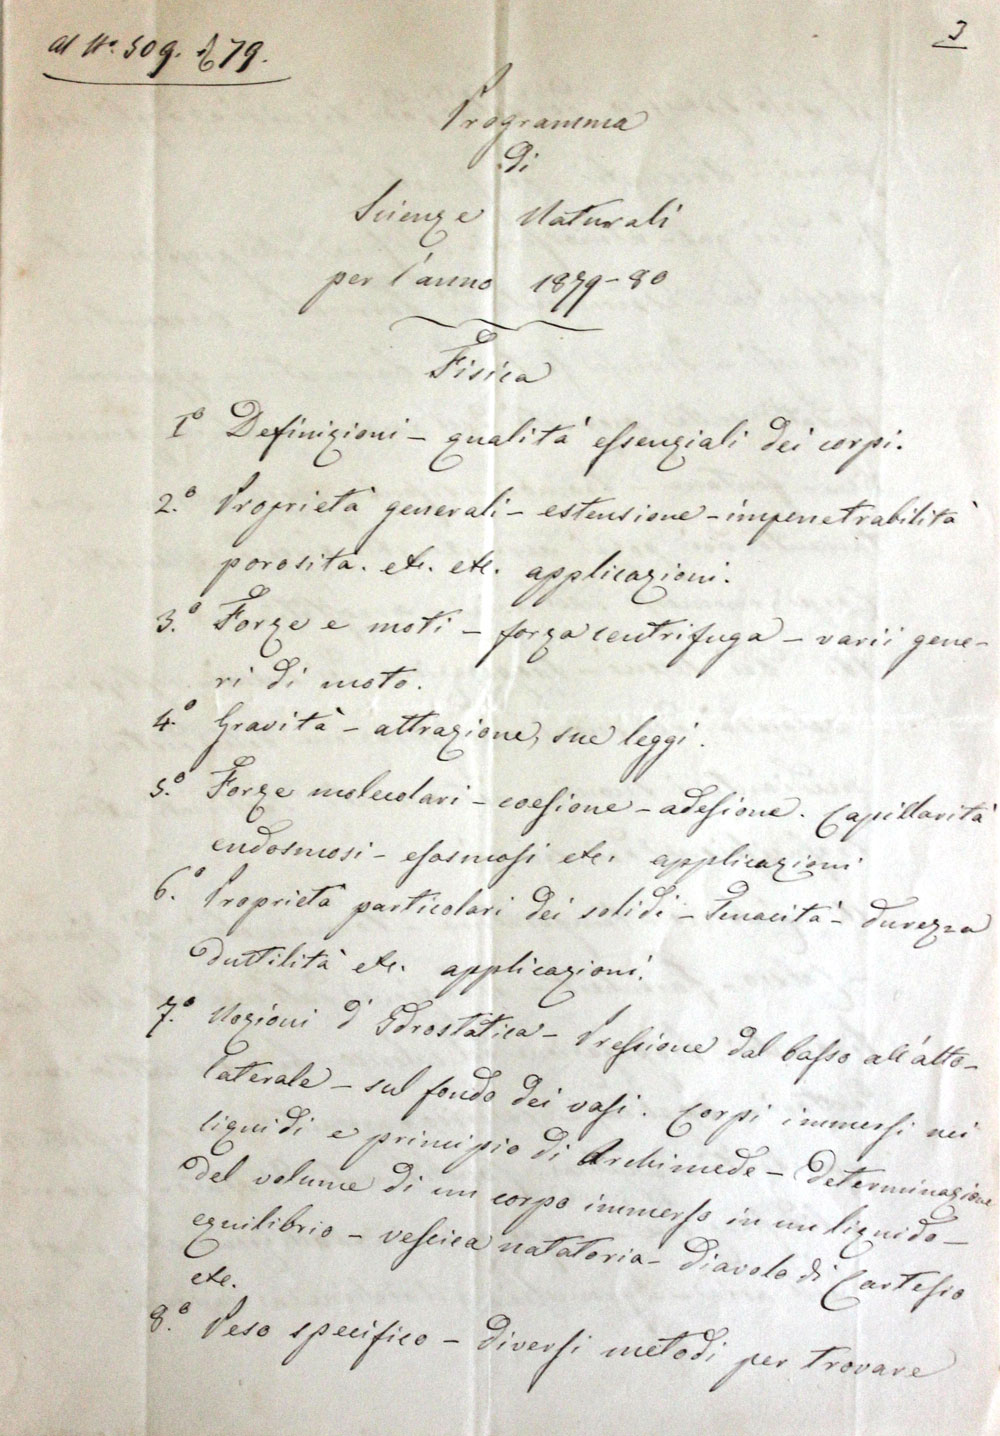 al N.º 509. 79.
3
Programma
di
Scienze Naturali
per l'anno 1879-80
Fisica
1º Definizioni - qualità essenziali dei corpi.
2.º Proprietà generali - estensione - impenetrabilità
porosità. etc. etc. applicazioni.
3.º Forze e moti - forza centrifuga - varii gene-
ri di moto.
4.º Gravità - attrazione, sue leggi.
5.º Forze molecolari - coesione - adesione. Capillarità
endosmosi - esosmosi etc. applicazioni
6.º Proprietà particolari dei solidi - Tenacità - durezza
duttilità etc. applicazioni.
7.º Nozioni d'Idrostatica - Pressione dal basso all'alto -
laterale - sul fondo dei vasi. Corpi immersi nei
liquidi e principio di Archimede - Determinazione
del volume di un corpo immerso in un liquido -
equilibrio - vescica natatoria - diavolo di Cartesio
etc.
8.º Peso specifico - diversi metodi per trovare